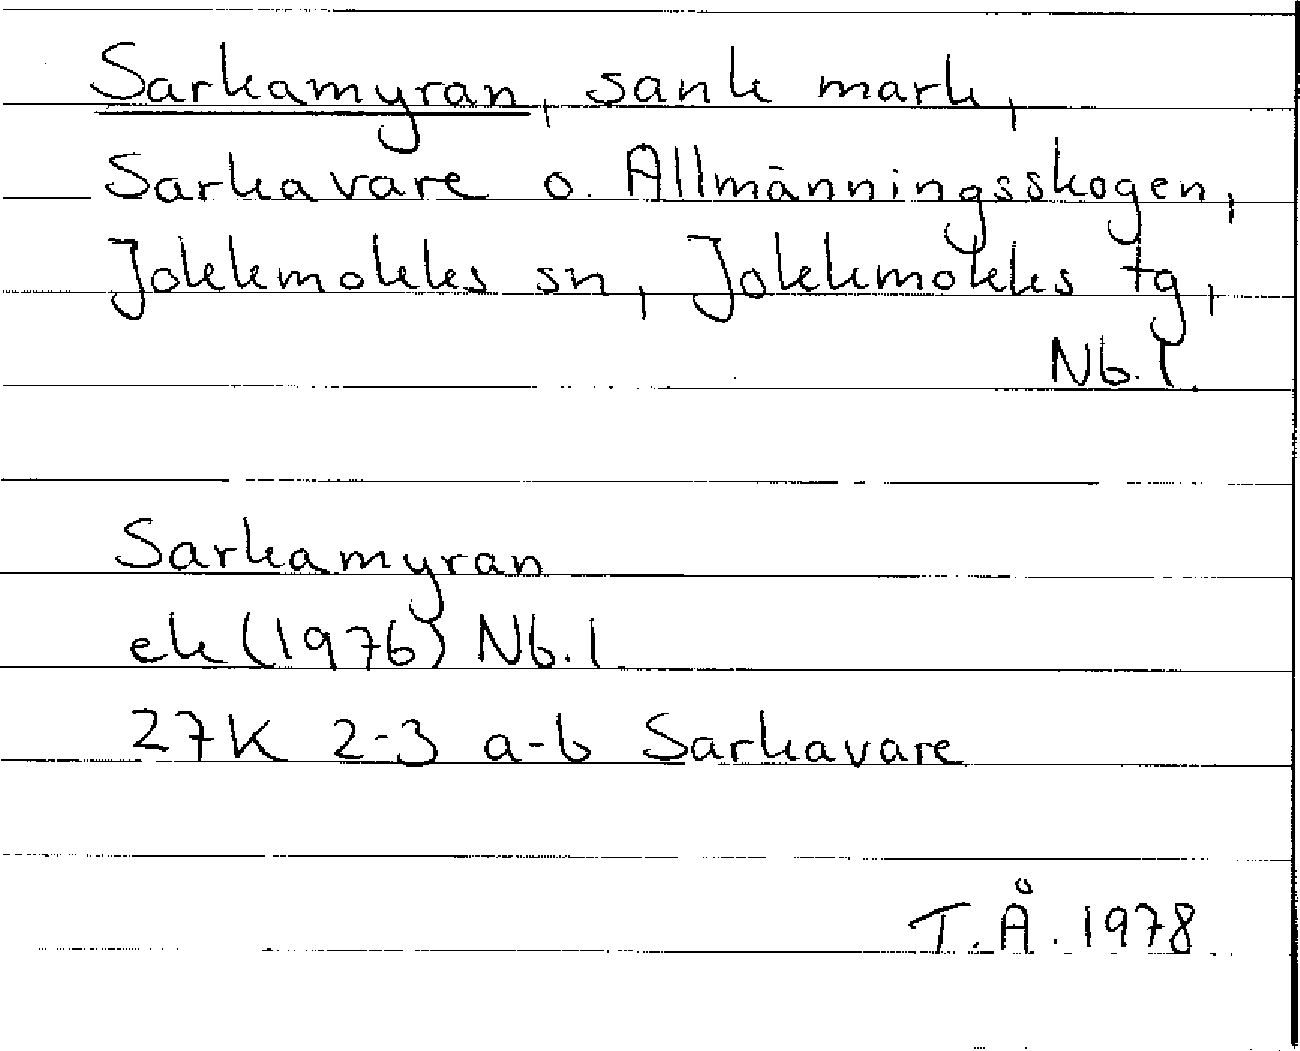 Sarkamyran, sank mark,
Sarkavare o. Allmänningsskogen,
Jokkmokks sn, Jokkmokks tg,
Nb. l.
Sarkamyran
ek (1976) Nb. l
27K 2-3 a-b Sarkavare
T. Å. 1978